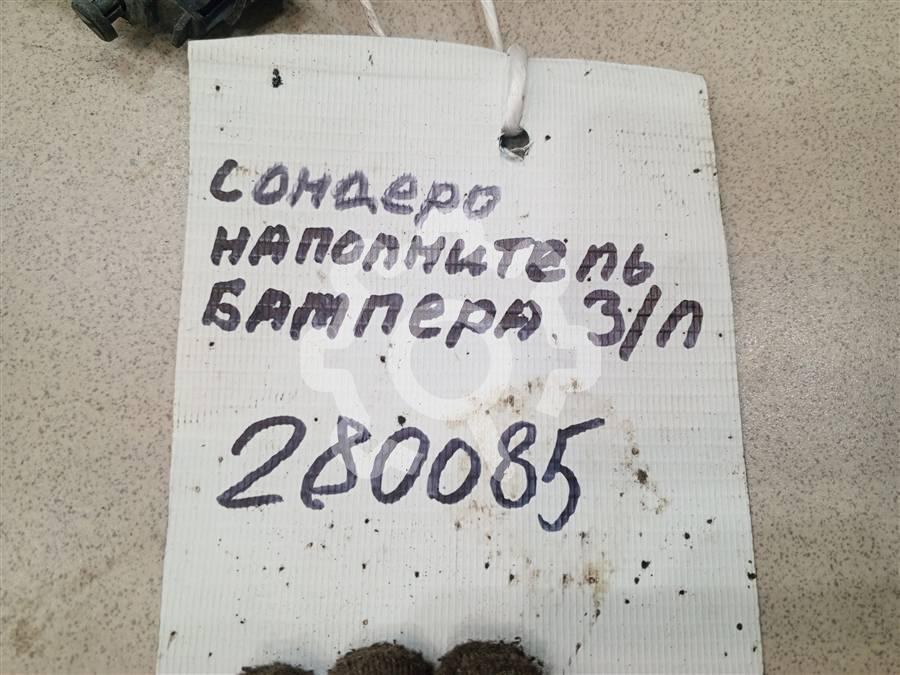 Сондеро
наполнитель
Бампера З/Л
280085